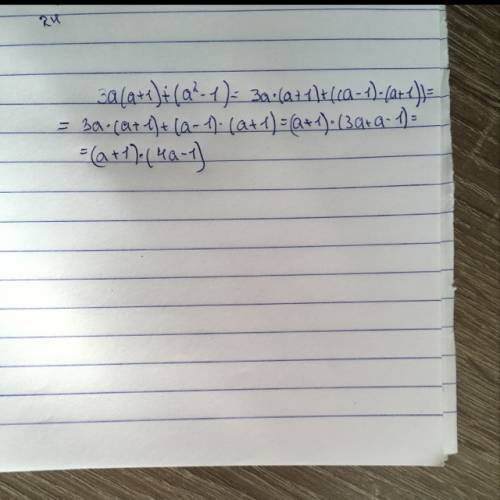 24
3a(a+1)+(a²-1)= 3a·(a+1)+((a-1)·(a+1))=
= 3a·(a+1)+(a-1)·(a+1)=(a+1)·(3a+a-1)=
=(a+1)·(4a-1)